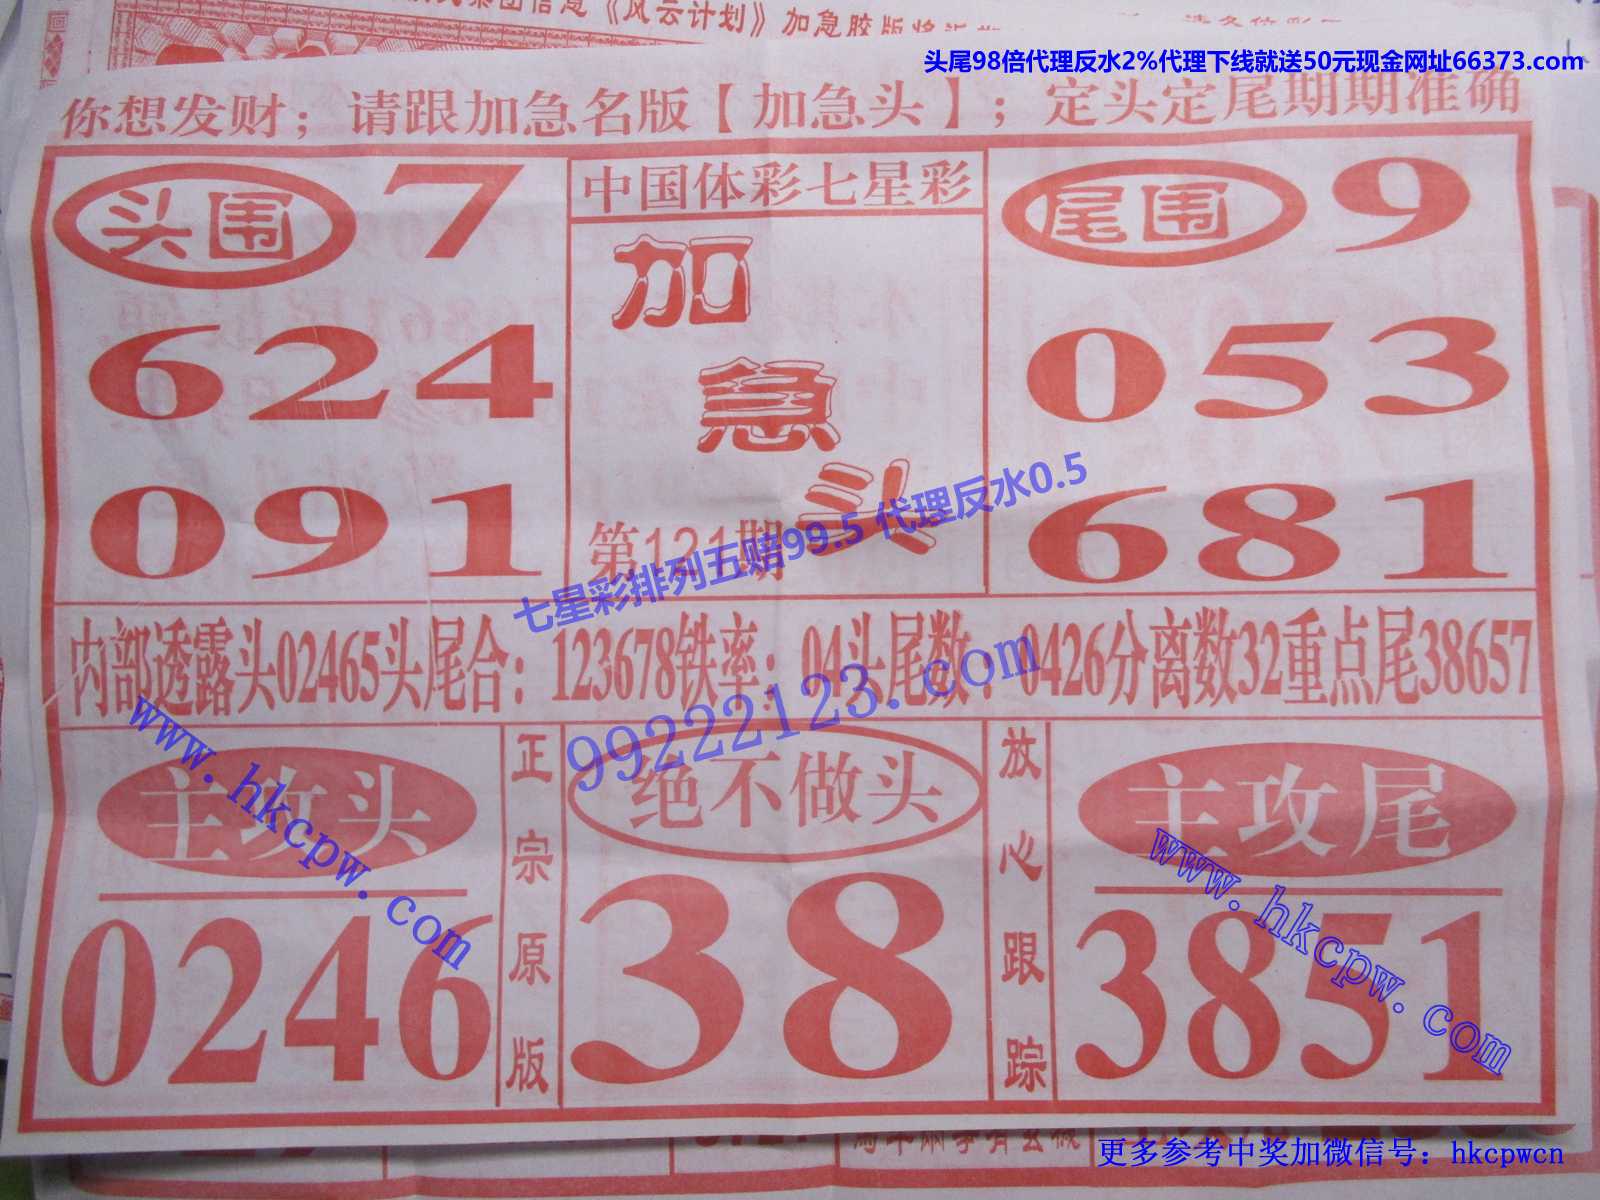 集团信息《风云计划》加急胶版
头尾98倍代理反水2%代理下线就送50元现金网址66373.com
你想发财；请跟加急名版【加急头】；定头定尾期期准确
头围 7
624
091
中国体彩七星彩
加急头
第121期
尾围 9
053
681
七星彩排列五赔99.5 代理反水0.5
内部透露头02465头尾合：123678铁率：04头尾数：0426分离数32重点尾38657
99222123.com
www.hkcpw.com
主攻头
0246
正宗原版
绝不做头
38
放心跟踪
主攻尾
3851
www.hkcpw.com
更多参考中奖加微信号：hkcpwcn